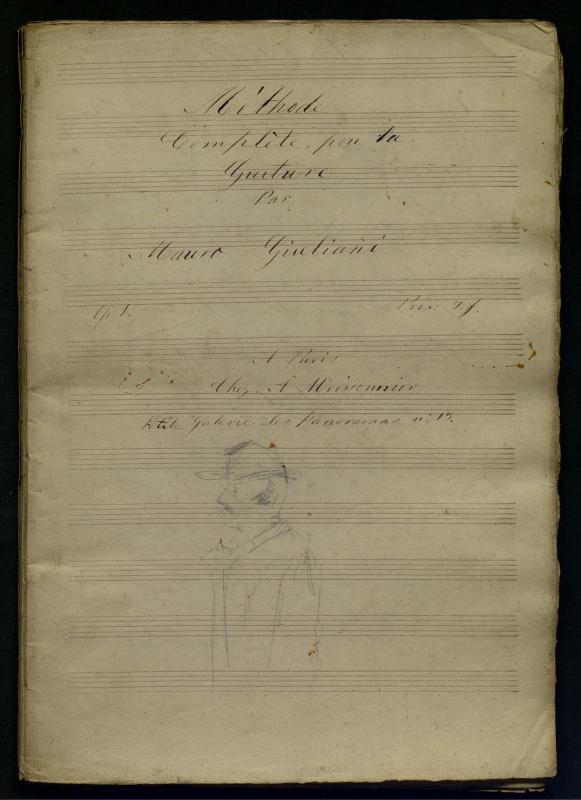 Méthode
Complète, pour la
Guitare
Par
Mauro Giuliani
Op 1. Prix: 9 f.
A Paris
Chez A Meissonnier
Petite Galerie des Panoramas n.° 13.